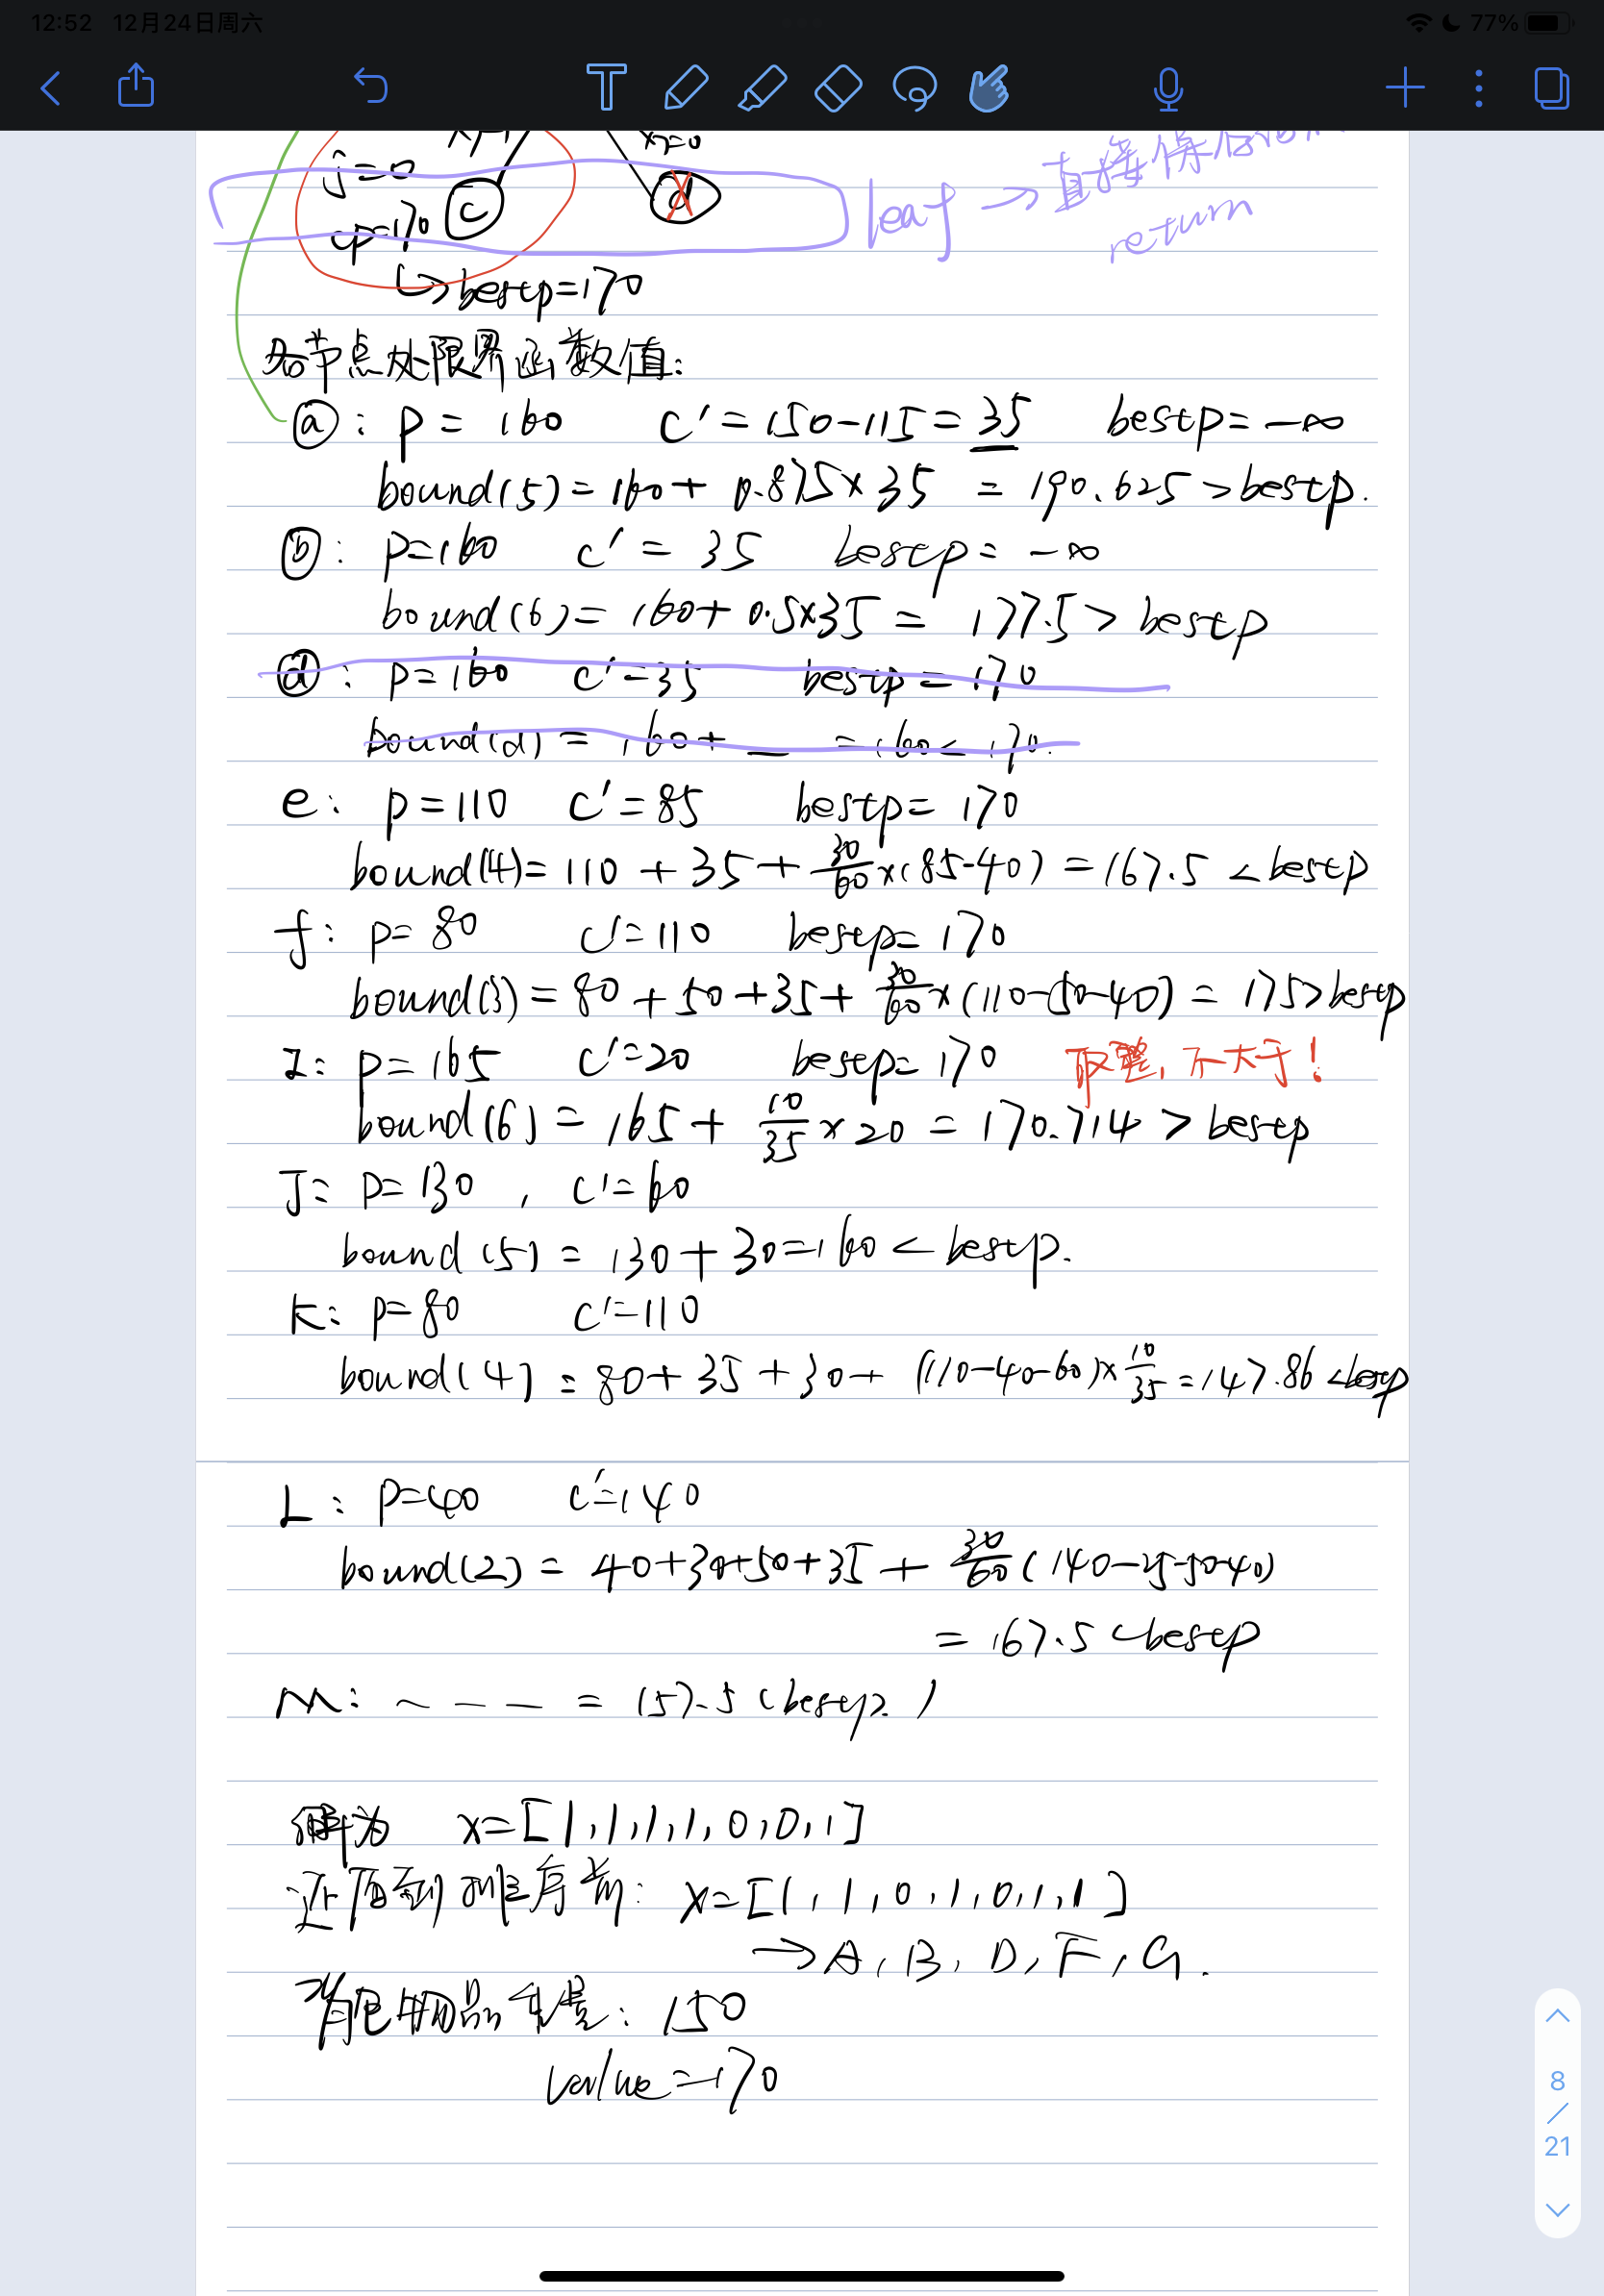 12:52 12月24日周六
77%
T
x=0
j=0
c
d
cp=170
leaf → 直接保存
return
↳ bestp=170
各节点处限界函数值:
ⓐ: p = 160 c' = 150-115 = 35 bestp = -∞
bound(5) = 160 + 0.875×35 = 190.625 > bestp.
ⓑ: p=160 c' = 35 bestp = -∞
bound(6) = 160 + 0.5×35 = 177.5 > bestp
ⓓ: p=160 c'=35 bestp = 170
bound(d) = 160 + — = 160 < 170.
e: p = 110 c' = 85 bestp = 170
bound(4) = 110 + 35 + 30/60 ×(85-40) = 167.5 < bestp
f: p= 80 c'=110 bestp= 170
bound(3) = 80 + 50 + 35 + 30/60 × (110-50-40) = 175 > bestp
I: p= 165 c'=20 bestp= 170 取整, 不大于!
bound(6) = 165 + 10/35 × 20 = 170.714 > bestp
J: p= 130 , c'=60
bound(5) = 130 + 30 = 160 < bestp.
K: p= 80 c'=110
bound(4) = 80 + 35 + 30 + (110-40-60)× 10/35 = 147.86 < bestp
L: p=40 c'=140
bound(2) = 40+30+50+35 + 30/60 (140-25-50-40)
= 167.5 < bestp
M: ~ - — = 157.5 < bestp. )
解为 x=[1,1,1,1,0,0,1]
还原到排序前: x=[1,1,0,1,0,1,1]
→ A, B, D, F, G.
背包物品重量: 150
value=170
8
/
21